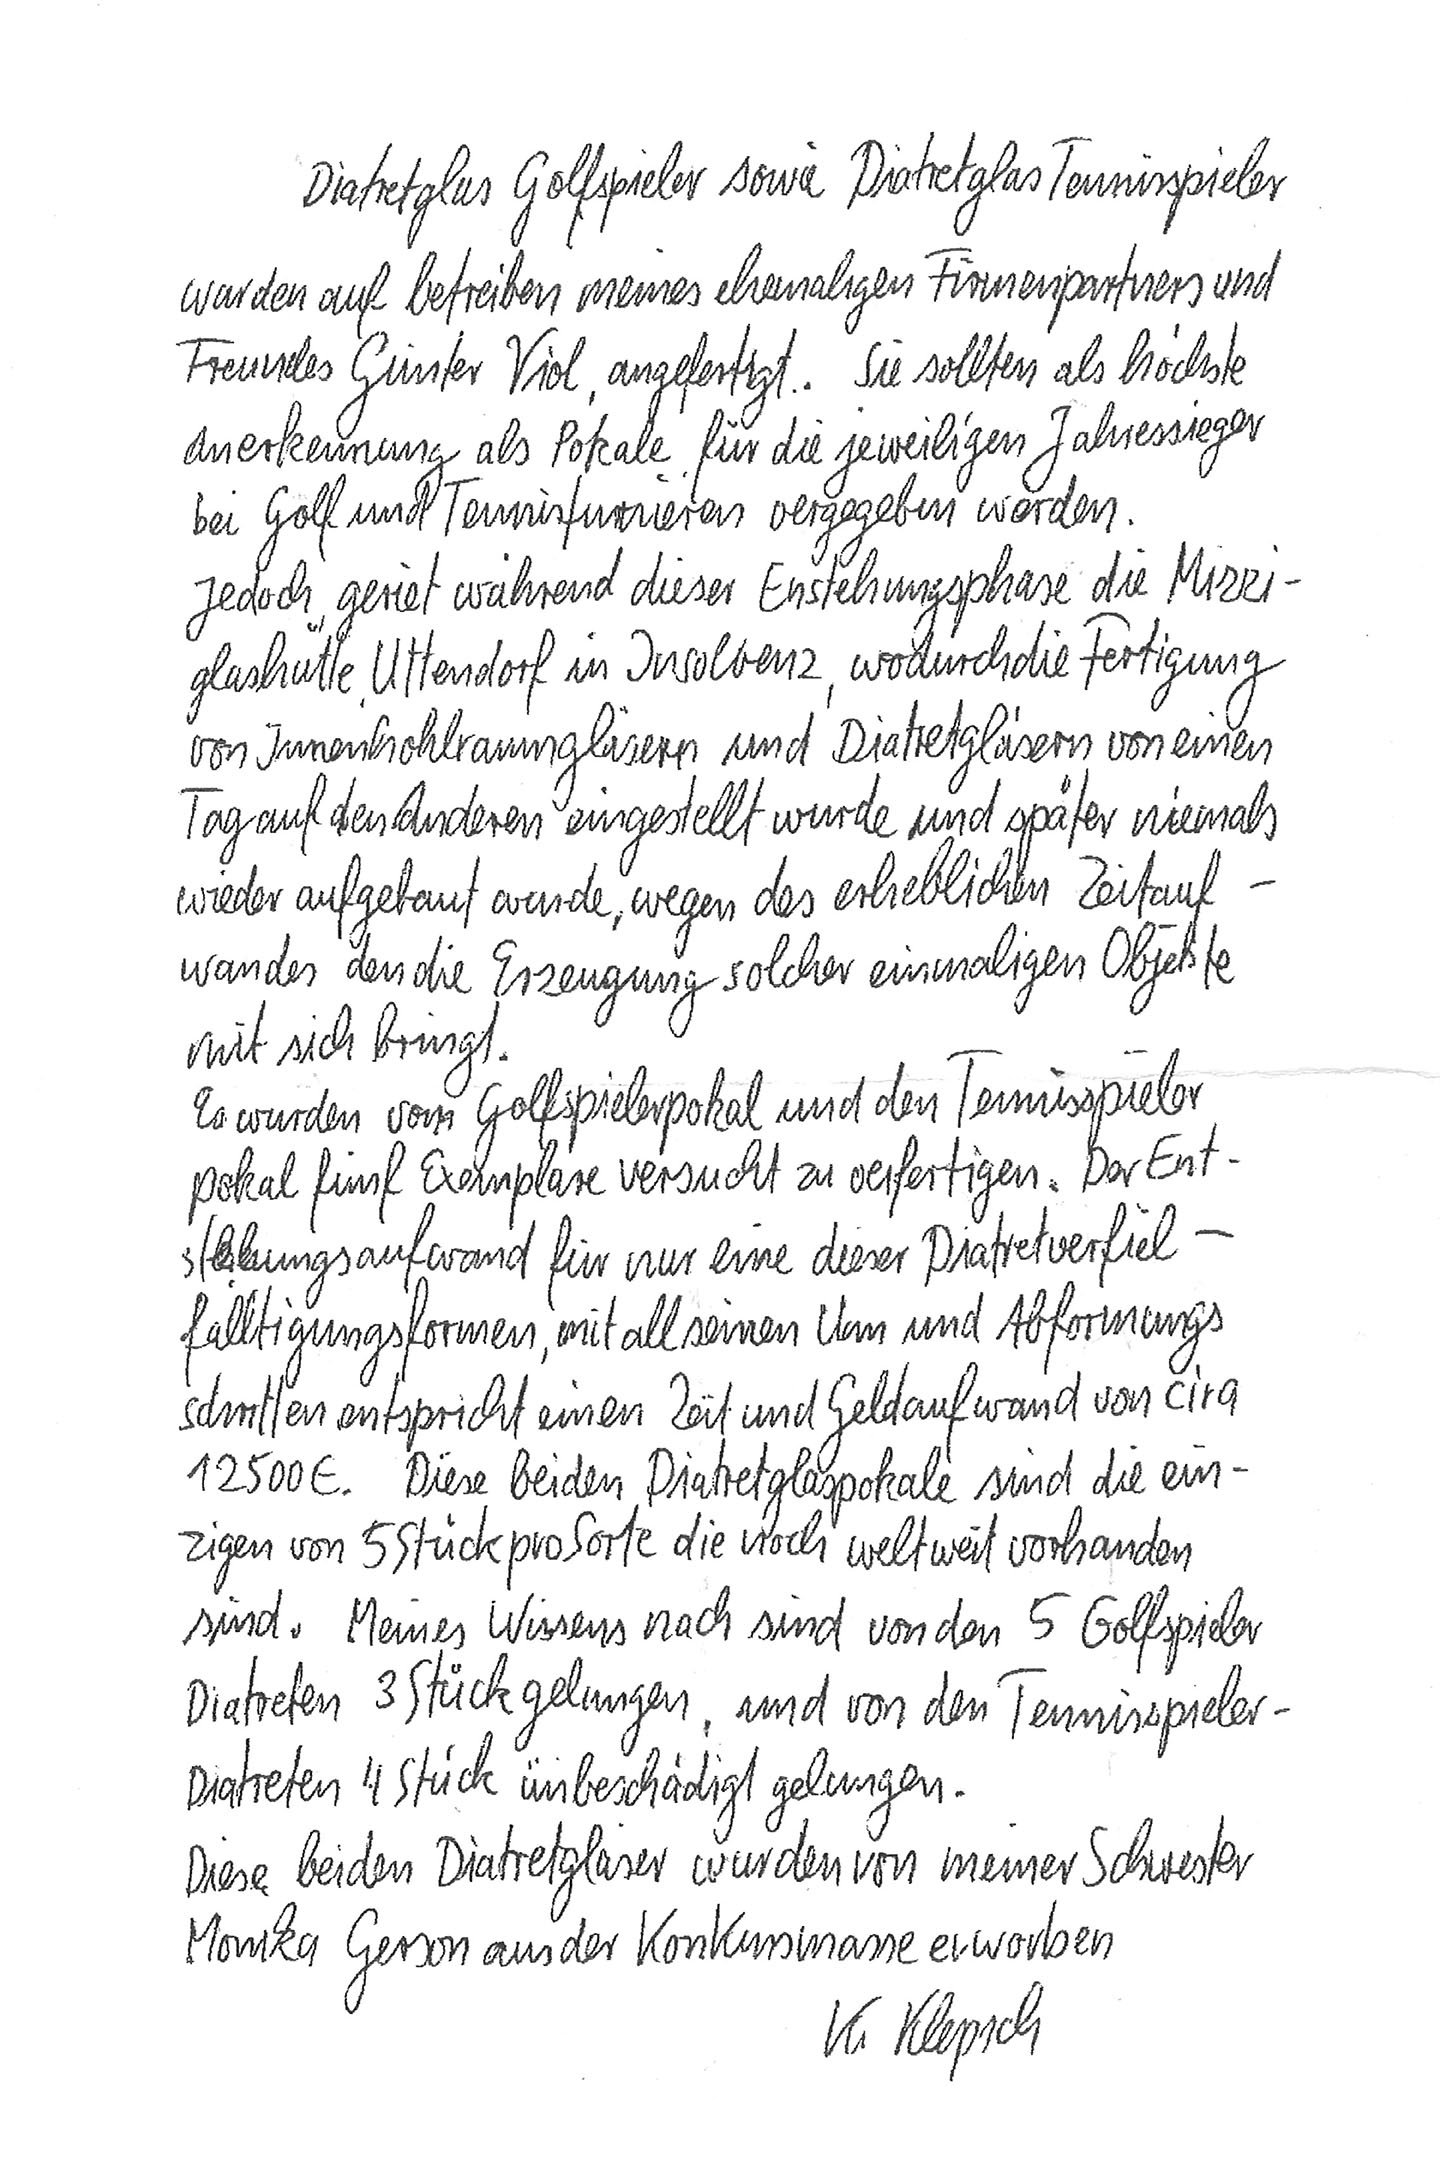 Diatretglas Golfspieler sowie Diatretglas Tennisspieler
wurden auf betreiben meines ehemaligen Firmenpartners und
Freundes Günter Viol, angefertigt. Sie sollten als höchste
Anerkennung als Pokale, für die jeweiligen Jahressieger
bei Golf und Tennisturnieren vergegeben werden.
Jedoch, geriet während dieser Enstehungsphase die Mizzi-
glashütte, Uttendorf in Insolvenz, wodurch die Fertigung
von Innenhohlraumgläsern und Diatretgläsern von einen
Tag auf den Anderen eingestellt wurde und später niemals
wieder aufgebaut wurde, wegen des erheblichen Zeitauf-
wandes den die Erzeugung solcher einmaligen Objekte
mit sich bringt.
Es wurden vom Golfspielerpokal und den Tennisspieler
pokal fünf Exemplare versucht zu verfertigen. Der Ent-
stehungsaufwand für nur eine dieser Diatretverfiel-
fälltigungsformen, mit all seinen Um und Abformungs
schritten entspricht einen Zeit und Geldaufwand von cira
12500€. Diese beiden Diatretglaspokale sind die ein-
zigen von 5 Stück pro Sorte die noch weltweit vorhanden
sind. Meines Wissens nach sind von den 5 Golfspieler
Diatreten 3 Stück gelungen, und von den Tennisspieler-
Diatreten 4 Stück unbeschädigt gelungen.
Diese beiden Diatretgläser wurden von meiner Schwester
Monika Gerson aus der Konkursmasse erworben
K. Klepsch